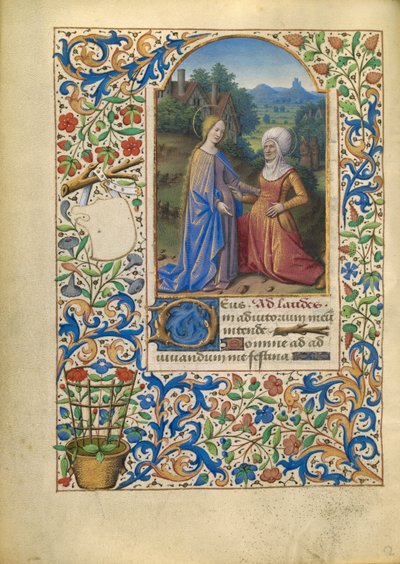 Eus. Ad laudes
in adiutorium meū
intende
Domine ad ad
iuuandum me festina